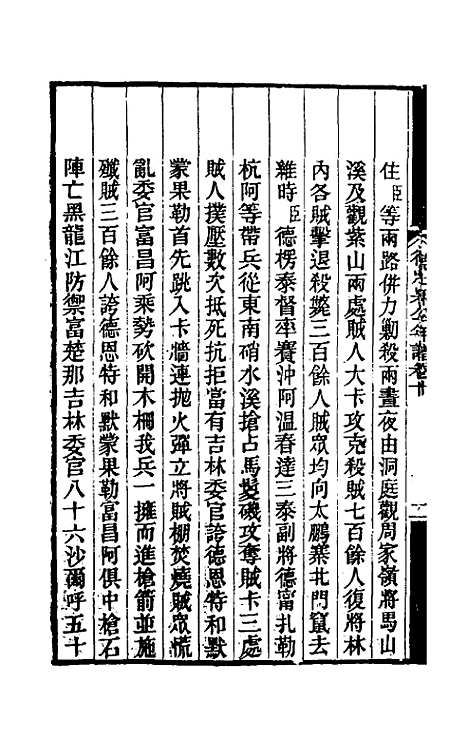 住臣等兩路併力勦殺兩晝夜由洞庭觀周家嶺將馬山
溪及觀紫山兩處賊人大卡攻克殺賊七百餘人復將林
內各賊擊退殺斃三百餘人賊眾均向太鵬寨北門竄去
維時臣德楞泰督率賽沖阿溫春達三泰副將德甯扎勒
杭阿等帶兵從東南硝水溪搶占馬鬉磯攻奪賊卡三處
賊人撲壓數次抵死抗拒當有吉林委官誇德恩特和默
蒙果勒首先跳入卡牆連拋火彈立將賊棚焚燒賊眾慌
亂委官富昌阿乘勢砍開木柵我兵一擁而進槍箭並施
殲賊三百餘人誇德恩特和默蒙果勒富昌阿俱中槍石
陣亡黑龍江防禦富楚那吉林委官八十六沙爾呼五十